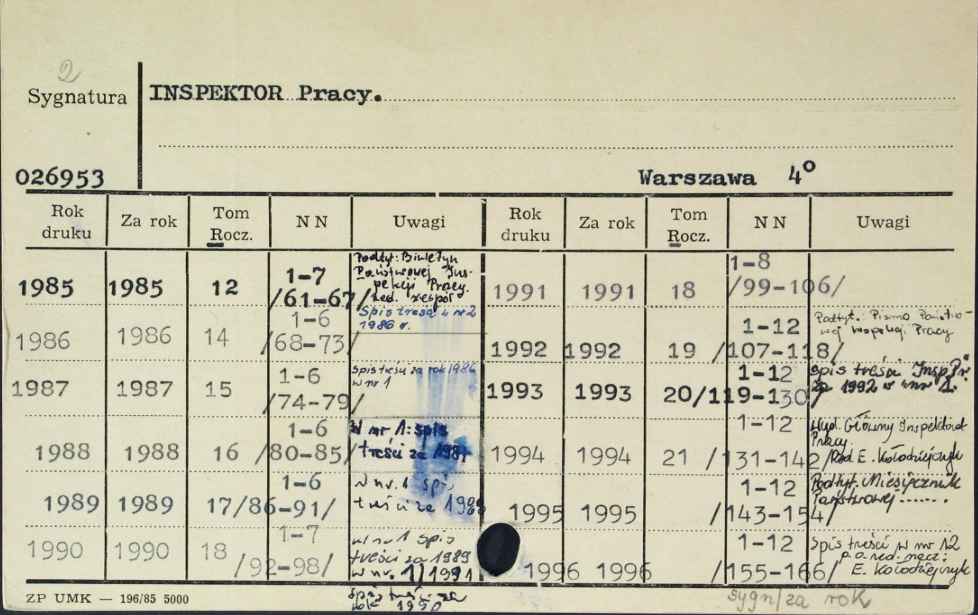 2
Sygnatura
INSPEKTOR Pracy.
026953
Warszawa 4o
Rok druku Za rok Tom Rocz. NN Uwagi
1985 1985 12 1-7 /61-67/ Podtyt: Biuletyn Państwowej Inspekcji Pracy. Red. zespół
Spis treści w nr 2 1986 r.
1986 1986 14 1-6 /68-73/
1987 1987 15 1-6 /74-79/ spis treści za rok 1986 w nr 1
1988 1988 16 1-6 /80-85/ W nr 1: spis treści za 1987
1989 1989 17/86-91/ 1-6 w nr. 1 spis treści za 1988
1990 1990 18 1-7 /92-98/ w nr 1 spis treści za 1989
w nr. 1/1991 spis treści za rok 1990
Rok druku Za rok Tom Rocz. NN Uwagi
1991 1991 18 1-8 /99-106/
1992 1992 19 1-12 /107-118/ Podtyt. Pismo Państwowej Inspekcji Pracy
1993 1993 20 1-12 /119-130/ spis treści Insp. Pr. za 1992 w nr 1.
1994 1994 21 1-12 /131-142/ Wyd. Główny Inspektorat Pracy. Red E. Kołodziejczyk
1995 1995 1-12 /143-154/ Podtyt. Miesięcznik Państwowej .......
1996 1996 1-12 /155-166/ spis treści w nr 12
p.o. red. nacz: E. Kołodziejczyk
ZP UMK — 196/85 5000
sygn/za rok